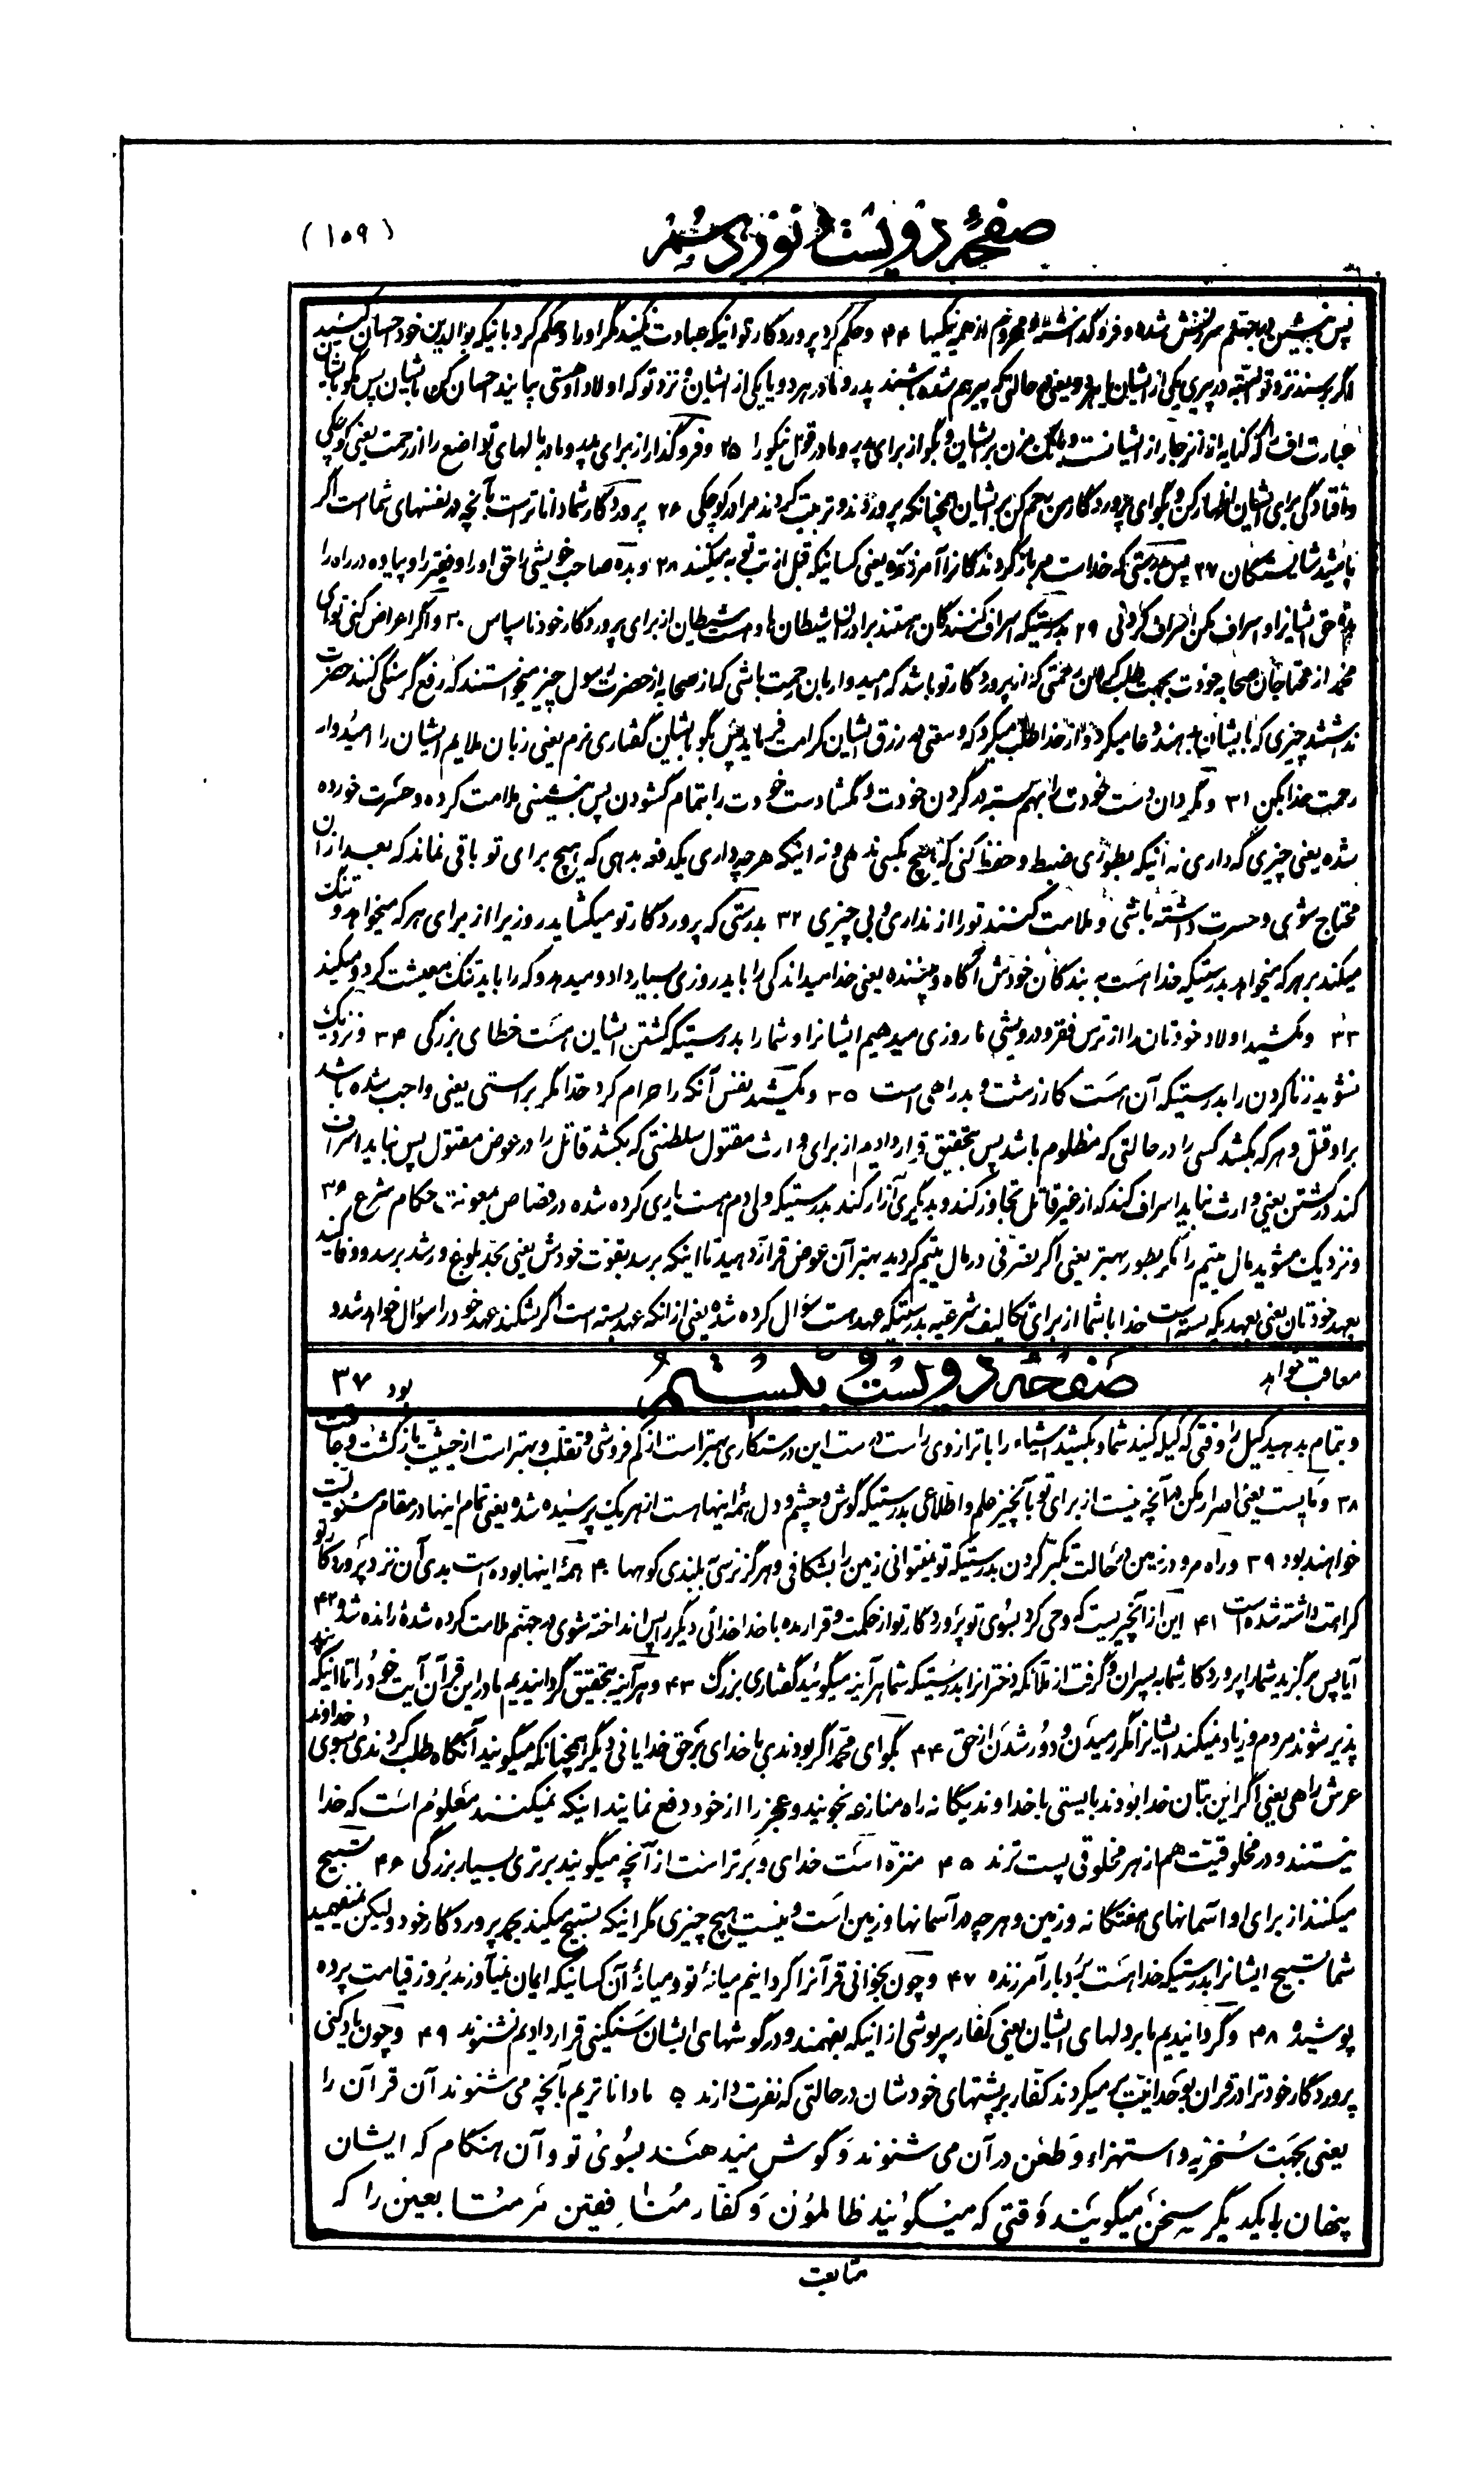 (۱۵۹)
صفحهٔ دویست و نوزدهم
پس بنشین در جهنم سرزنش شده و فرو گذاشته و محروم از همه نیکیها ۲۴ و حکم کرد پروردگار تو اینکه عبادت نکنید مگر او را و حکم کرد باینکه بوالدین خود احسان کنید
اگر برسند نزد تو البته در پیری یکی از ایشان یا هر دو یعنی در حالتی که پیر هم شده باشند پدر و مادر هر دو یا یکی از ایشان و نزد تو که اولاد او هستی بیایند احسان کن بایشان پس مگو بایشان
عبارت اف را که کنایه از انزجار از ایشانست و بانگ مزن بر ایشان و بگو از برای پدر و مادر قول نیکو را ۲۵ و فرو گذار از برای پدر و مادر بالهای تواضع را از رحمت یعنی کوچکی
و افتادگی برای ایشان اظهار کن و بگو ای پروردگار من رحم کن بر ایشان همچنانکه پروردند و تربیت کردند مرا در کوچکی ۲۶ پروردگار شما داناتر است بآنچه در نفسهای شما است اگر
باشید شایستگان ۲۷ پس بدرستی که خداست مر بازگردندگانرا آمرزنده یعنی کسانیکه قبل از تب توبه میکنند ۲۸ و بده صاحب خویشی را حق او را و فقیر را و پیاده در راه را
بده حق ایشانرا و اسراف مکن اسراف کردنی ۲۹ بدرستیکه اسراف کنندگان هستند برادران شیطان ها و هست شیطان از برای پروردگار خود ناسپاس ۳۰ و اگر اعراض کنی تو ای
محمد از محتاجان صحابه خودت بجهت طلب کردن رحمتی که از پروردگار تو باشد که امیدوار بان رحمت باشی که از صحابه از حضرت رسول چیز میخواستند که رفع گرسنگی کنند حضرت
نداشتند چیزی که بایشان بدهند دعا میکرد و از خدا طلب میکرد که وسعتی در رزق ایشان کرامت فرماید پس بگو بایشان گفتاری نرم یعنی زبان ملایم ایشان را امیدوار
رحمت خدا بکن ۳۱ و مگردان دست خودت را بهم بسته در گردن خودت و مگشا دست خودت را بتمام گشودن پس بنشینی ملامت کرده و حسرت خورده
شده یعنی چیزی که داری نه آنیکه بطوری ضبط و حفظ کنی که هیچ بکسی ندهی و نه اینکه هر چه داری یکدفعه بدهی که هیچ برای تو باقی نماند که بعد از آن
محتاج شوی و حسرت داشته باشی و ملامت کنند تو را از نداری و بی چیزی ۳۲ بدرستی که پروردگار تو میگشاید روزیرا از برای هر که میخواهد و تنگ
میکند بر هر که میخواهد بدرستیکه خدا هست به بندگان خودش آگاه و بیننده یعنی خدا میداند کی را باید روزی بسیار داد و میدهد و که را باید تنگ معیشت کرد و میکند
۳۳ و مکشید اولاد خودتان را از ترس فقر و درویشی ما روزی میدهیم ایشانرا و شما را بدرستیکه کشتن ایشان هست خطای بزرگی ۳۴ و نزدیک
نشوید زنا کردن را بدرستیکه آن هست کار زشت و بد راهی است ۳۵ و مکشید نفس آنکه را حرام کرد خدا مگر براستی یعنی واجب شده باشد
بر او قتل و هر که بکشد کسی را در حالتی که مظلوم باشد پس بتحقیق قرار دادیم از برای وارث مقتول سلطنتی که بکشد قاتل را در عوض مقتول پس نباید اسراف
کند در کشتن یعنی وارث نباید اسراف کند که از غیر قاتل تجاوز کند و بدیگری آزار کند بدرستیکه ولی دم هست یاری کرده شده در قصاص بمعونت حکام شرع ۳۶
و نزدیک مشوید مال یتیم را مگر بطور بهتر یعنی اگر تصرفی در مال یتیم کردید بهتر آن عوض قرار دهید تا اینکه برسد بقوت خودش یعنی بحد بلوغ و رشد برسد و وفا کنید
بعهد خودتان یعنی بعهدیکه بسته است خدا با شما از برای تکالیف شرعیه بدرستیکه عهد هست سؤال کرده شده یعنی از آنکه عهد بسته است اگر بشکند عهد خود را سؤال خواهد شد و
معاقب خواهد
صفحهٔ دویست و بیستم
بود ۳۷
و تمام بدهید کیل را وقتی که کیله کنید شما و بکشید اشیاء را با ترازوی راست درست این درستکاری بهتر است از کم فروشی و تقلب و بهتر است از حیثیت بازگشت و عاقبت
۳۸ و مایست یعنی اصرار مکن در آنچه نیست از برای تو بآنچیز علم و اطلاعی بدرستیکه گوش و چشم و دل همه اینها هست از هر یک پرسیده شده یعنی تمام اینها در مقام مسئولیت
خواهند بود ۳۹ و راه مرو در زمین در حالت تکبر کردن بدرستیکه تو نمیتوانی زمین را بشکافی و هرگز نرسی بلندی کوهها ۴۰ همهٔ اینها بوده است بدی آن نزد پروردگار تو
کراهت داشته شده است ۴۱ این از آنچیزیست که وحی کرد بسوی تو پروردگار تو از حکمت و قرار مده با خدا خدائی دیگر را پس انداخته شوی در جهنم ملامت کرده شدهٔ رانده شده ۴۲
آیا پس برگزید شما را پروردگار شما به پسران و گرفت از ملائکه دخترانرا بدرستیکه شما هرآینه میگوئید گفتاری بزرگ ۴۳ و هرآینه بتحقیق گردانیدیم ما در این قرآن آیت خود را تا اینکه پند
پذیر شوند مردم و زیاد نمیکند ایشانرا مگر رمیدن و دور شدن از حق ۴۴ بگو ای محمد اگر بودندی با خدای برحق خدایانی دیگر همچنانکه میگویند آنگاه طلب کردندی بسوی خداوند
عرش راهی یعنی اگر این بتان خدا بودند بایستی با خداوند یگانه راه منازعه بجویند و عجز را از خود دفع نمایند اینکه نمیکنند معلوم است که خدا
نیستند و در مخلوقیت هم از هر مخلوقی پست ترند ۴۵ منزه است خدای و برتر است از آنچه میگویند برتری بسیار بزرگی ۴۶ تسبیح
میکنند از برای او آسمانهای هفتگانه و زمین و هر چه در آسمانها و زمین است و نیست هیچ چیزی مگر اینکه تسبیح میکند بحمد پروردگار خود ولیکن نمیفهمید
شما تسبیح ایشانرا بدرستیکه خدا هست بردبار آمرزنده ۴۷ و چون بخوانی قرآنرا گردانیم میانهٔ تو و میانهٔ آن کسانیکه ایمان نمیآورند بروز قیامت پرده
پوشیده ۴۸ و گردانیدیم ما بر دلهای ایشان یعنی کفار سرپوشی از اینکه بفهمند و در گوشهای ایشان سنگینی قرار دادیم نشنوند ۴۹ و چون یاد کنی
پروردگار خود ترا در قرآن بوحدانیت بر میگردند کفار بر پشتهای خودشان در حالتی که نفرت دارند ۵۰ ما داناتریم بآنچه می شنوند آن قرآن را
یعنی بجهت سخریه و استهزاء و طعن در آن می شنوند و گوش میدهند بسوی تو و آن هنگام که ایشان
پنهان با یکدیگر سخن میگویند وقتی که میگویند ظالمون و کفار منافقین مر متابعین را که
متابعت